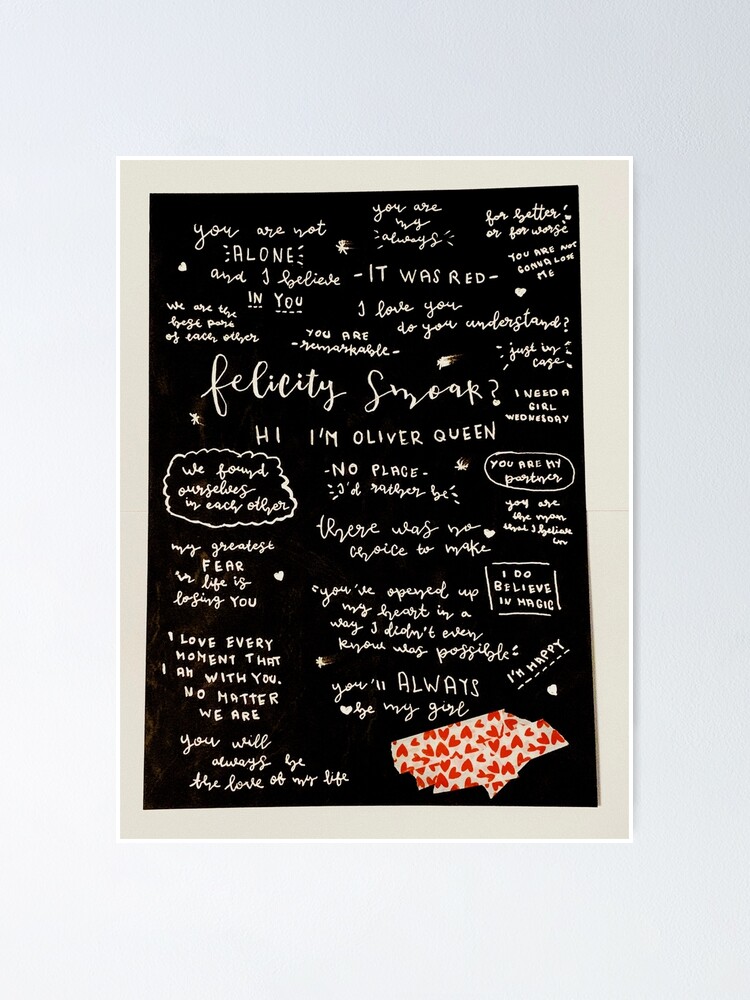 you are not
ALONE
and I believe
IN YOU
you are
my
always
for better
or for worse
YOU ARE NOT
GONNA LOSE
ME
-IT WAS RED-
we are the
best part
of each other
I love you
do you understand?
YOU ARE
-remarkable-
just in
case
felicity Smoak?
HI I'M OLIVER QUEEN
I NEED A
GIRL
WEDNESDAY
we found
ourselves
in each other
-NO PLACE-
I'd rather be
YOU ARE MY
partner
you are
the man
that I believe
in
there was no
choice to make
my greatest
FEAR
in life is
losing YOU
I DO
BELIEVE
IN MAGIC
"you've opened up
my heart in a
way I didn't even
know was possible"
I LOVE EVERY
MOMENT THAT
I AM WITH YOU.
NO MATTER
WE ARE
I'M HAPPY
you'll ALWAYS
be my girl
you will
always be
the love of my life